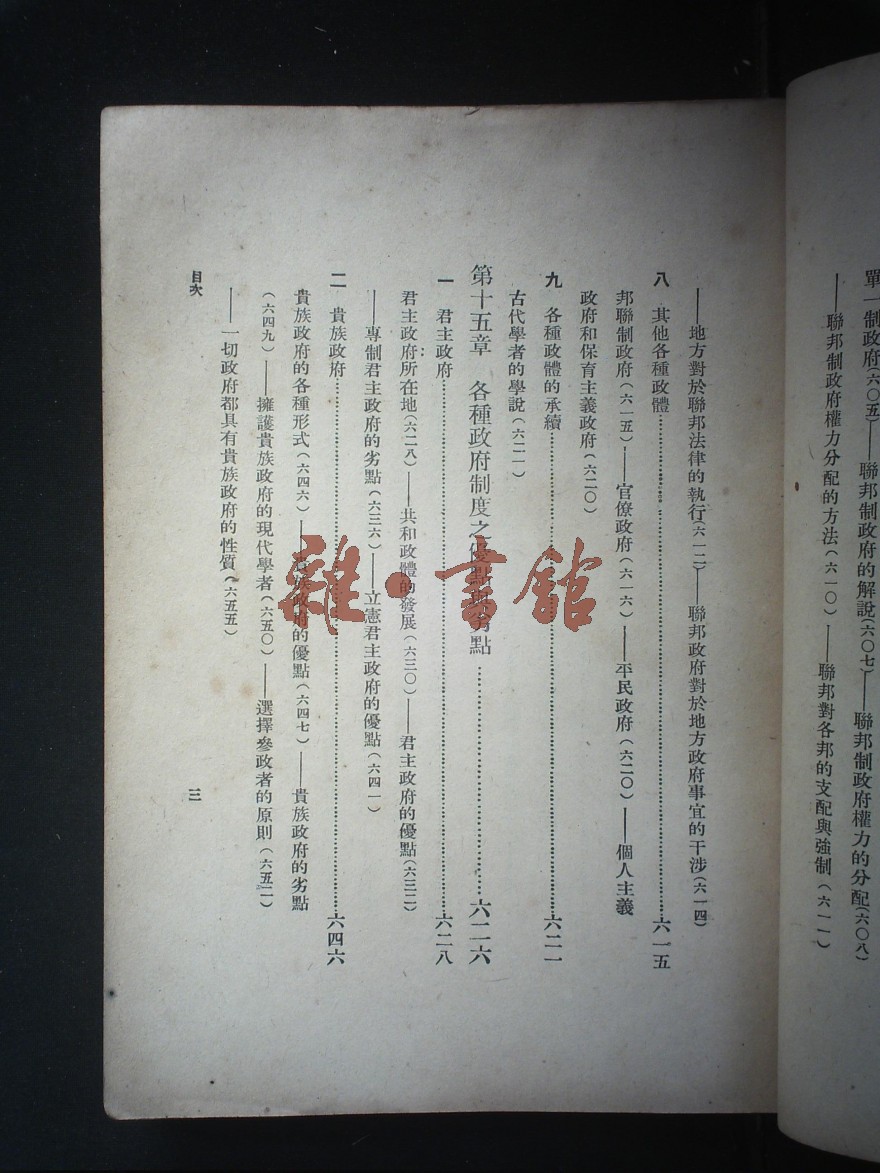 單一制政府(六〇五)——聯邦制政府的解說(六〇七)——聯邦制政府權力的分配(六〇八)
——聯邦制政府權力分配的方法(六一〇)——聯邦對各邦的支配與強制(六一一)
——地方對於聯邦法律的執行(六一二)——聯邦政府對於地方政府事宜的干涉(六一四)
八 其他各種政體……六一五
邦聯制政府(六一五)——官僚政府(六一六)——平民政府(六二〇)——個人主義
政府和保育主義政府(六二〇)
九 各種政體的承續……六二一
古代學者的學說(六二一)
第十五章 各種政府制度之優點與劣點……六二六
一 君主政府……六二八
君主政府所在地(六二八)——共和政體的發展(六三〇)——君主政府的優點(六三二)
——專制君主政府的劣點(六三六)——立憲君主政府的優點(六四一)
二 貴族政府……六四六
貴族政府的各種形式(六四六)——貴族政府的優點(六四七)——貴族政府的劣點
(六四九)——擁護貴族政府的現代學者(六五〇)——選擇參政者的原則(六五二)
——一切政府都具有貴族政府的性質(六五五)
目次
三
雜·書館